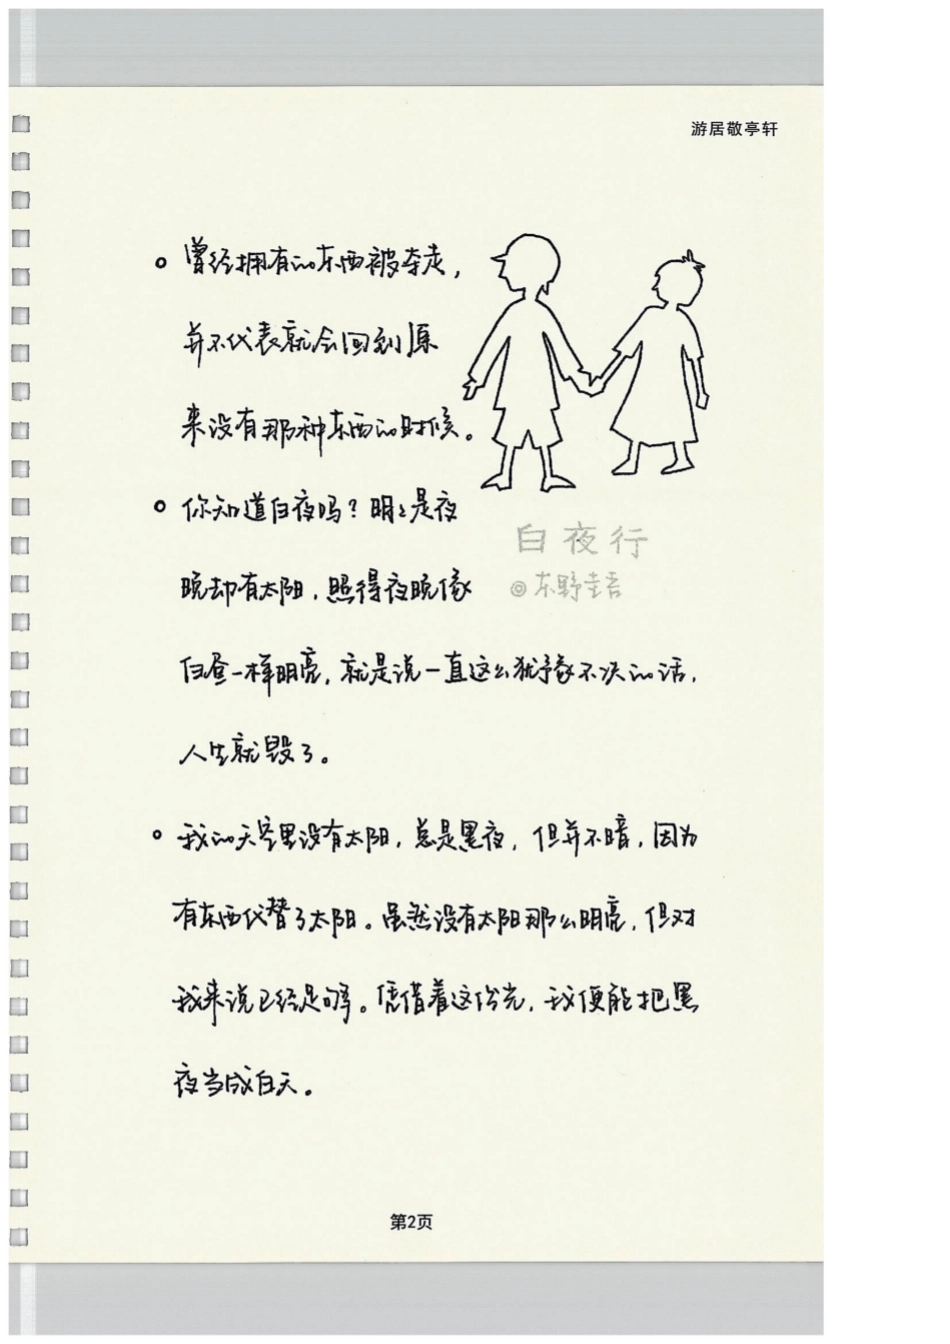 游居敬亭轩
。曾经拥有的东西被夺走，
并不代表就会回到原
来没有那种东西的时候。
。你知道白夜吗？明明是夜
晚却有太阳，照得夜晚像
白昼一样明亮，就是说一直这么犹豫不决的话，
人生就毁了。
白夜行
◎东野圭吾
。我的天空里没有太阳，总是黑夜，但并不暗，因为
有东西代替了太阳。虽然没有太阳那么明亮，但对
我来说已经足够。凭借着这份光，我便能把黑
夜当成白天。
第2页